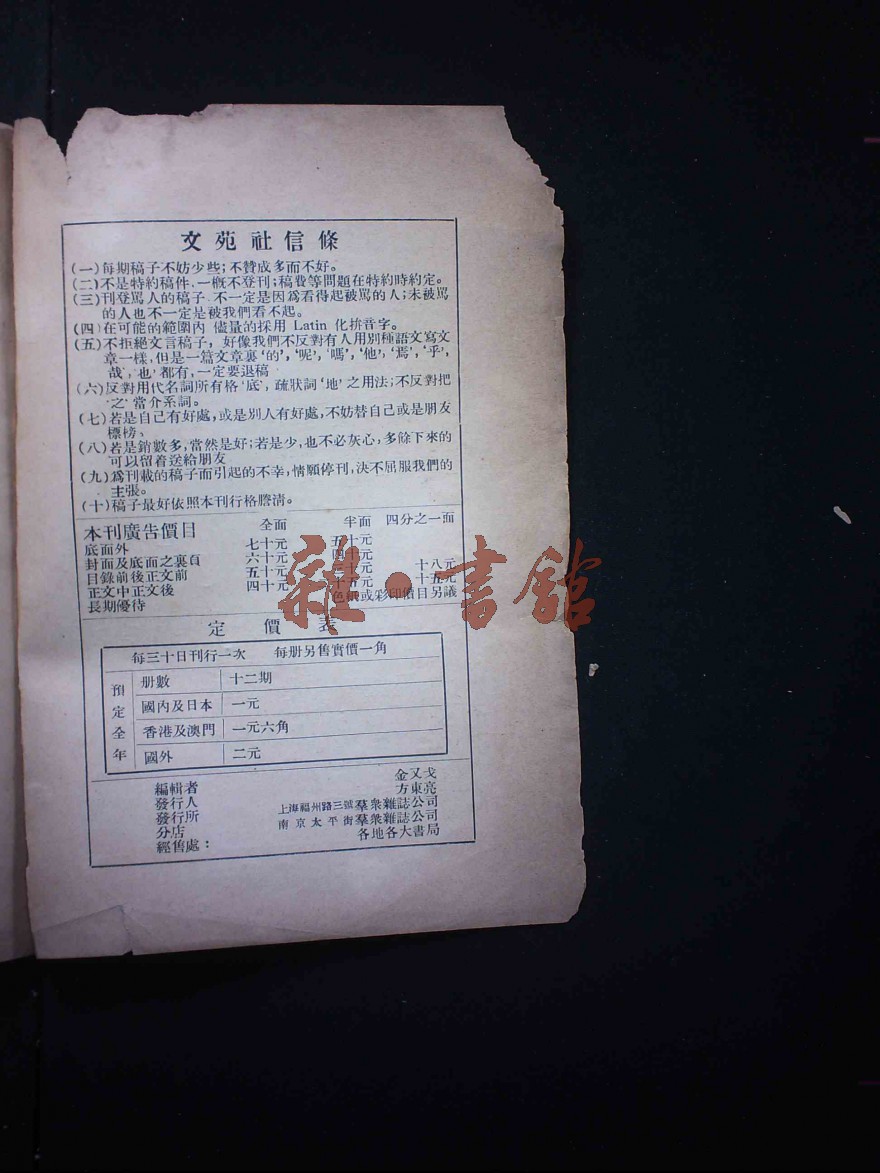 文苑社信條
(一)每期稿子不妨少些;不贊成多而不好。
(二)不是特約稿件、一概不登刊;稿費等問題在特約時約定。
(三)刊登罵人的稿子 不一定是因爲看得起被罵的人;未被罵
的人也不一定是被我們看不起。
(四)在可能的範圍內 儘量的採用 Latin 化拚音字。
(五)不拒絕文言稿子, 好像我們不反對有人用別種語文寫文
章一樣,但是一篇文章裏‘的’,‘呢’,‘嗎’,‘他’,‘焉’,‘乎’,
哉,‘也’都有,一定要退稿
(六)反對用代名詞所有格‘底’, 疏狀詞‘地’之用法;不反對把
‘之’當介系詞。
(七)若是自己有好處,或是別人有好處,不妨替自己或是朋友
標榜、
(八)若是銷數多,當然是好;若是少,也不必灰心,多餘下來的
可以留着送給朋友
(九)爲刊載的稿子而引起的不幸,情願停刊,決不屈服我們的
主張。
(十)稿子最好依照本刊行格謄清。
本刊廣告價目 全面 半面 四分之一面
底面外 七十元 五十元
封面及底面之裏頁 六十元 四十元
目錄前後正文前 五十元 十元 十八元
正文中正文後 四十元 十五元 十五元
長期優待 色紙或彩印價目另議
雜·書館
定價表
每三十日刊行一次 每册另售實價一角
預定全年
册數 十二期
國內及日本 一元
香港及澳門 一元六角
國外 二元
編輯者 金又戈
發行人 方東亮
發行所 上海福州路三號羣衆雜誌公司
分店 南京太平街羣衆雜誌公司
經售處: 各地各大書局